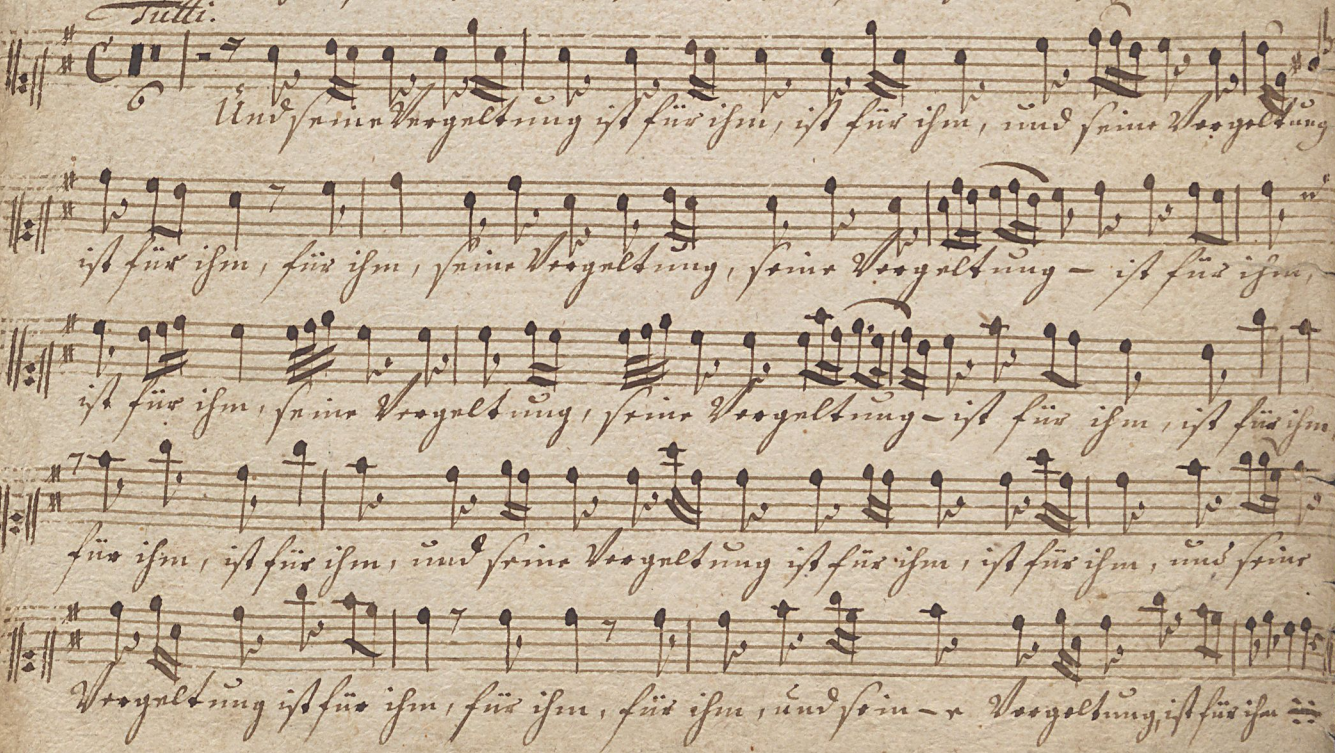 Tutti.
6
Und seine Vergeltung ist für ihm, ist für ihm, und seine Vergeltung
ist für ihm, für ihm, seine Vergeltung, seine Vergeltung - ist für ihm,
ist für ihm, seine Vergeltung, seine Vergeltung - ist für ihm, ist für ihm
für ihm, ist für ihm, und seine Vergeltung ist für ihm, ist für ihm, und seine
Vergeltung ist für ihm, für ihm, für ihm, und sein - e Vergeltung, ist für ihm